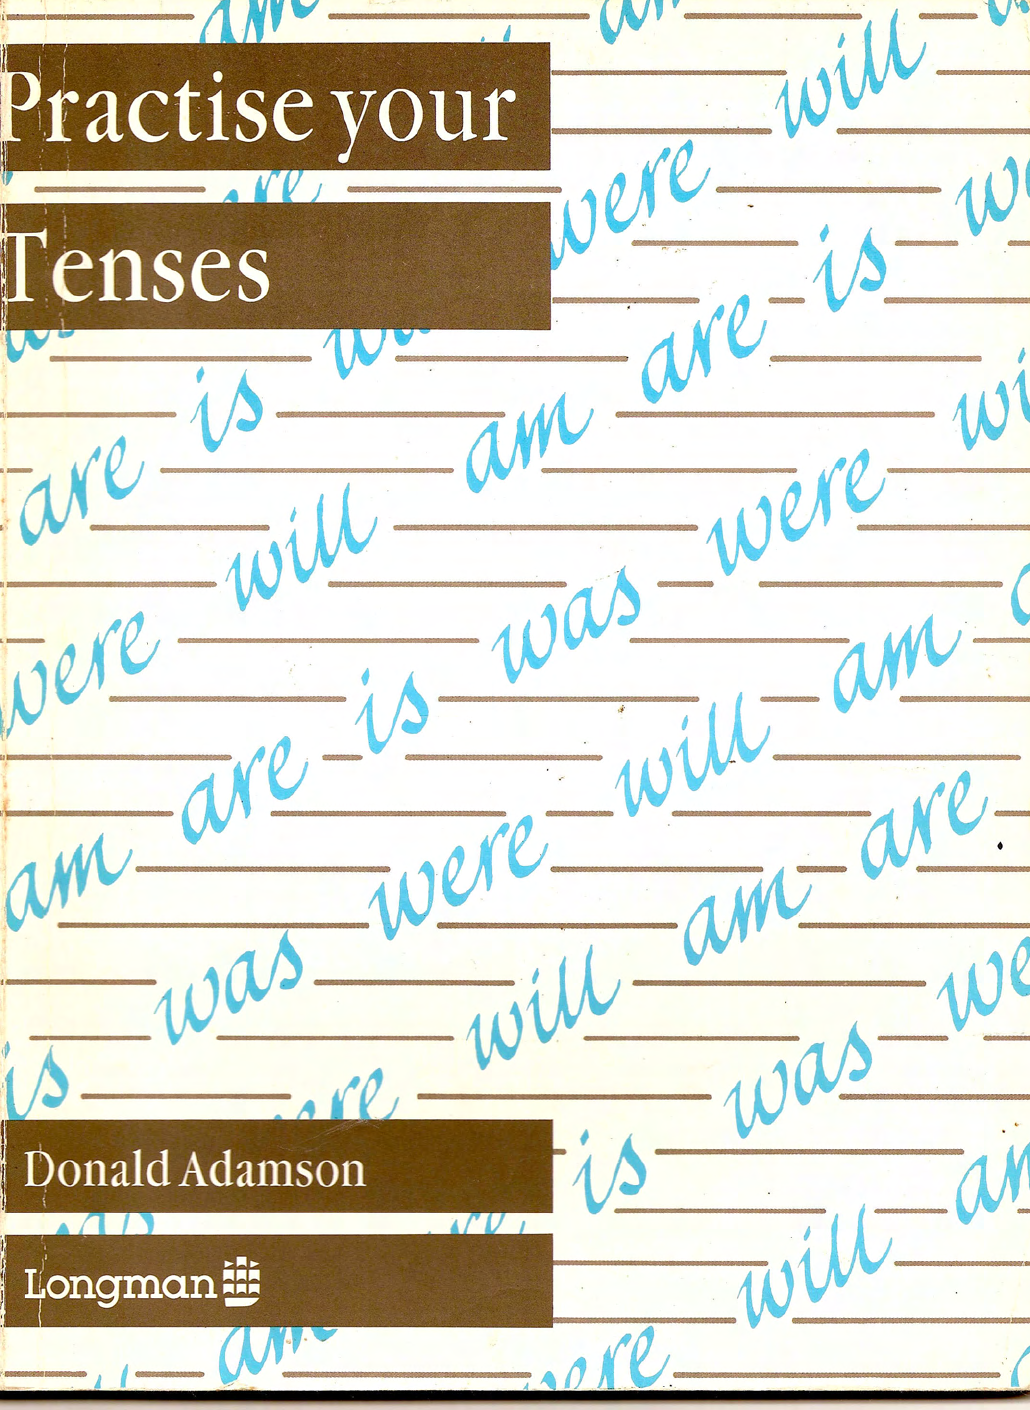 Practise your
Tenses
am
are is were will
were will am are is
am are is was were
is was were will am
will am are
is was we
am will am
were
Donald Adamson
Longman